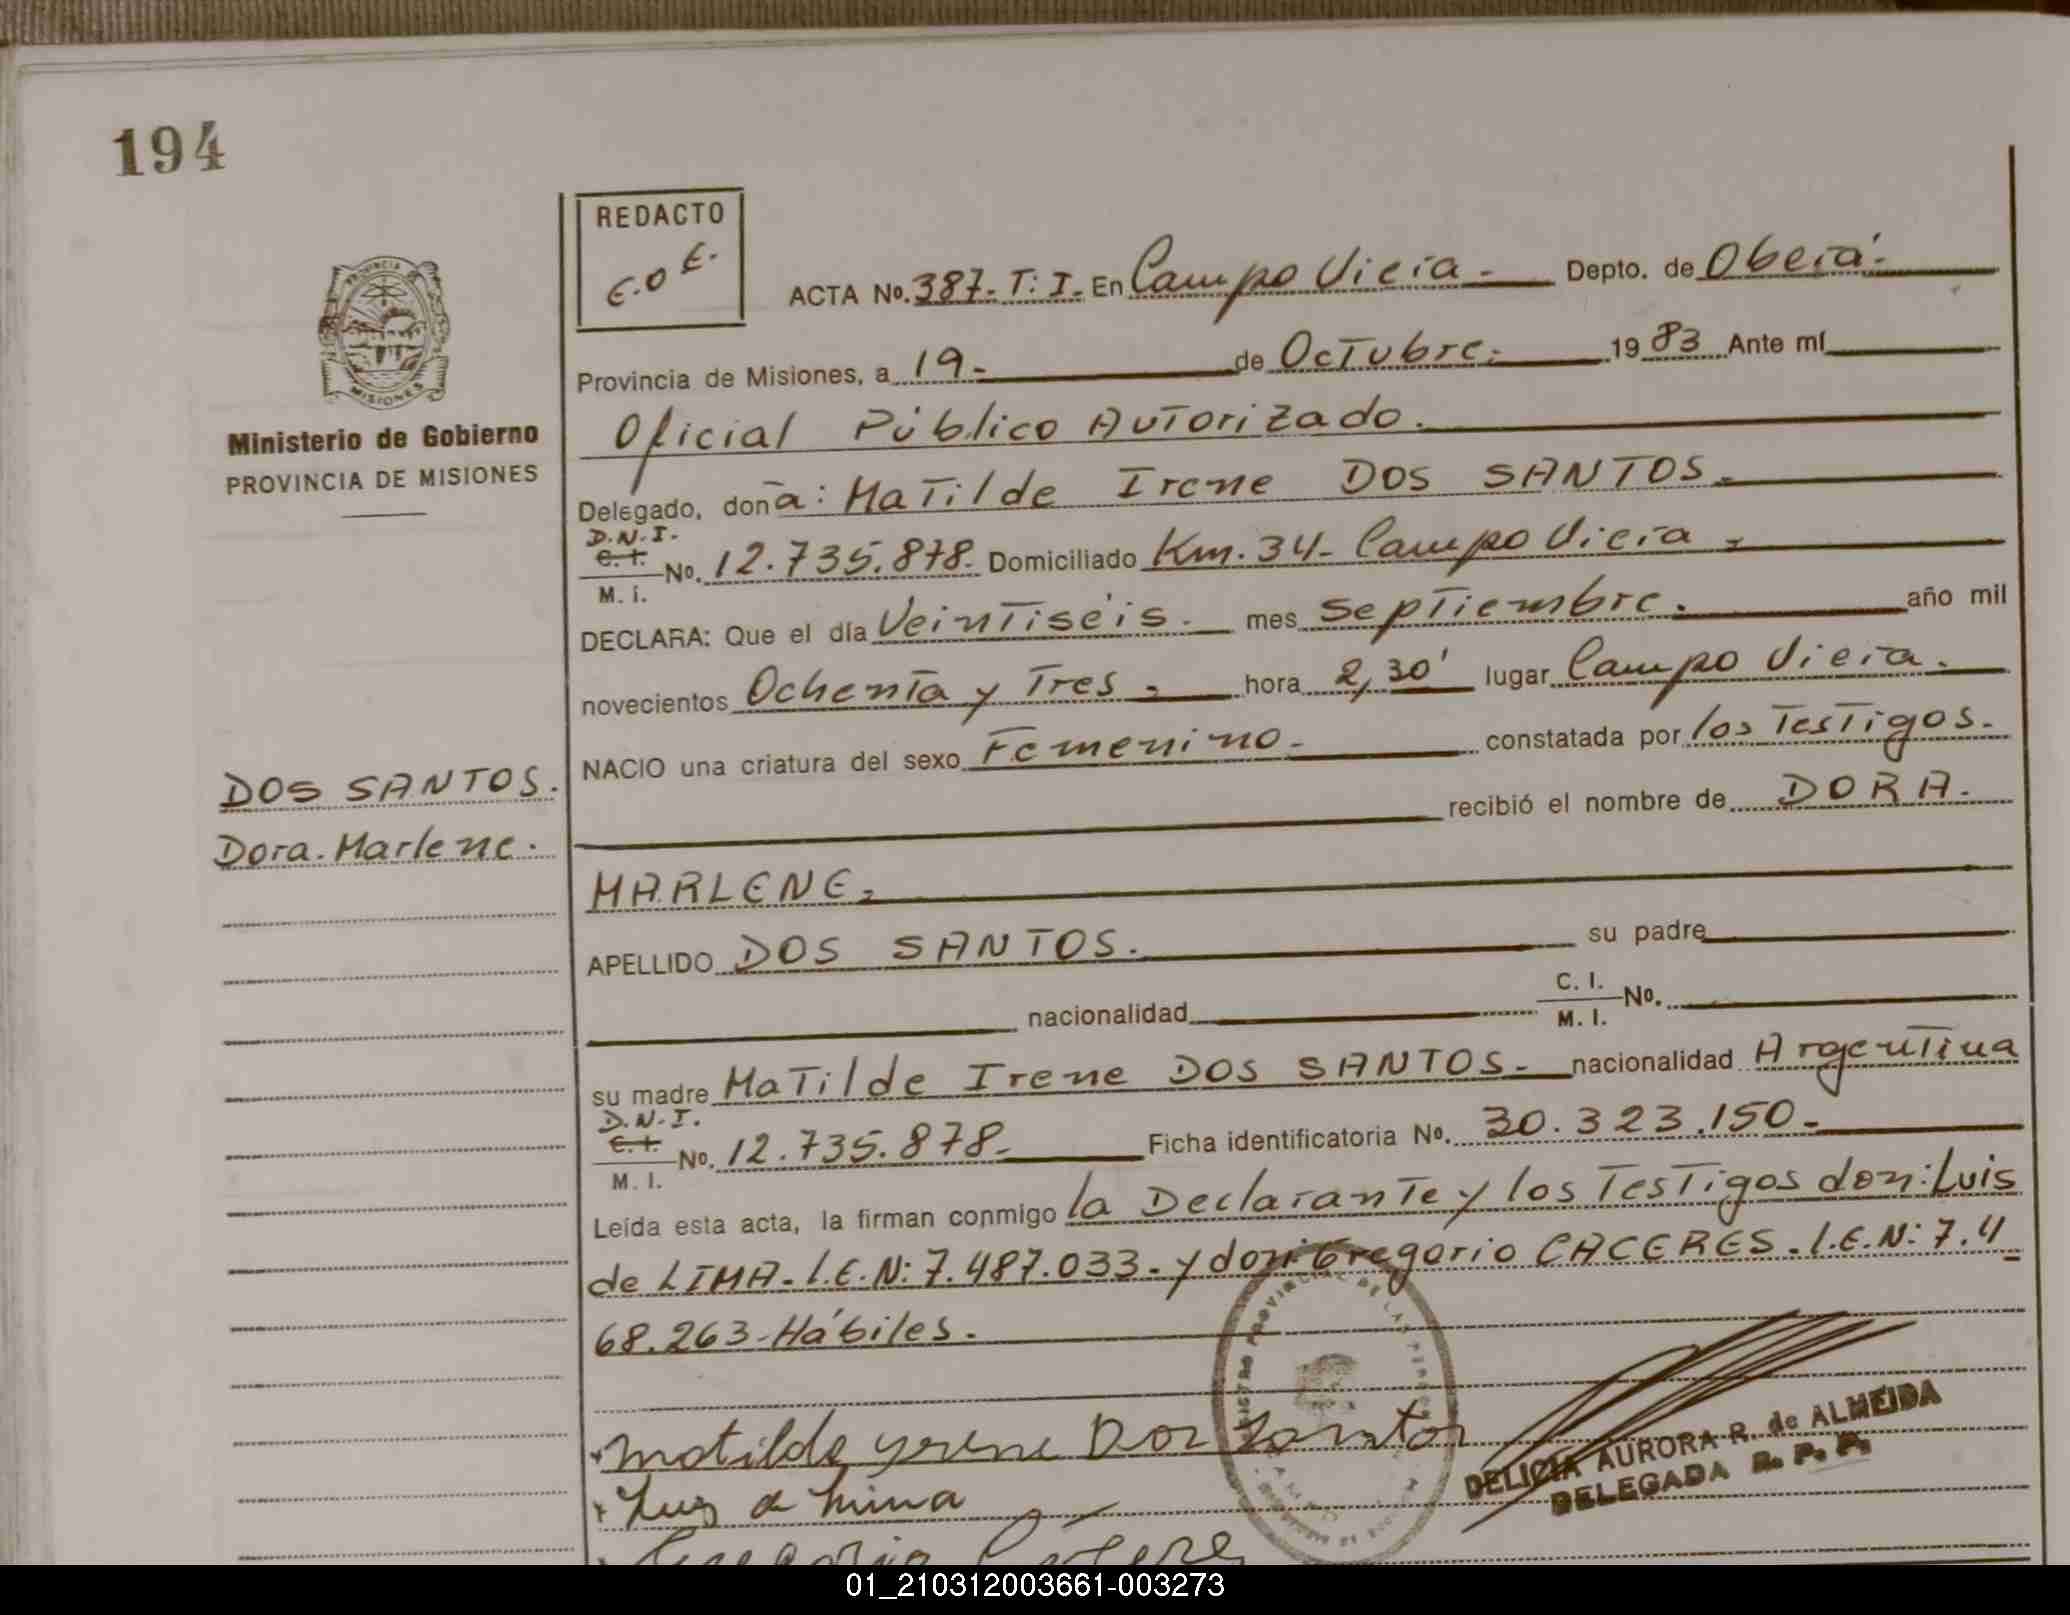 194
REDACTO
E.O E.
PROVINCIA DE
MISIONES
Ministerio de Gobierno
PROVINCIA DE MISIONES
ACTA No. 387- T: I. En Campo Viera - Depto. de Oberá.
Provincia de Misiones, a 19- de Octubre. 1983 Ante mí
Oficial Público Autorizado.
Delegado, doña: Matilde Irene DOS SANTOS.
D.N.I.
C. I.
No. 12.735.878. Domiciliado Km. 34- Campo Viera
M. I.
DECLARA: Que el día Veintiséis. mes septiembre. año mil
novecientos Ochenta y Tres hora 2,30' lugar Campo Viera.
NACIO una criatura del sexo Femenino- constatada por los Testigos.
recibió el nombre de DORA.
MARLENE
DOS SANTOS.
Dora. Marlene.
APELLIDO DOS SANTOS. su padre
nacionalidad C. I. No.
M. I.
su madre Matilde Irene DOS SANTOS- nacionalidad Argentina
D.N.I.
C. I.
No. 12.735.878- Ficha identificatoria No. 30.323.150-
M. I.
Leída esta acta, la firman conmigo la Declarante y los Testigos don: Luis
de LIMA- L.E.N: 7.487.033- y don: Gregorio CACERES. L.E.N: 7.4
68.263- Hábiles.
Matilde yrene Dos Santos
Luis de Lima
Gregorio Cáceres
DELICIA AURORA R. de ALMEIDA
DELEGADA R. P. P.
01_210312003661-003273